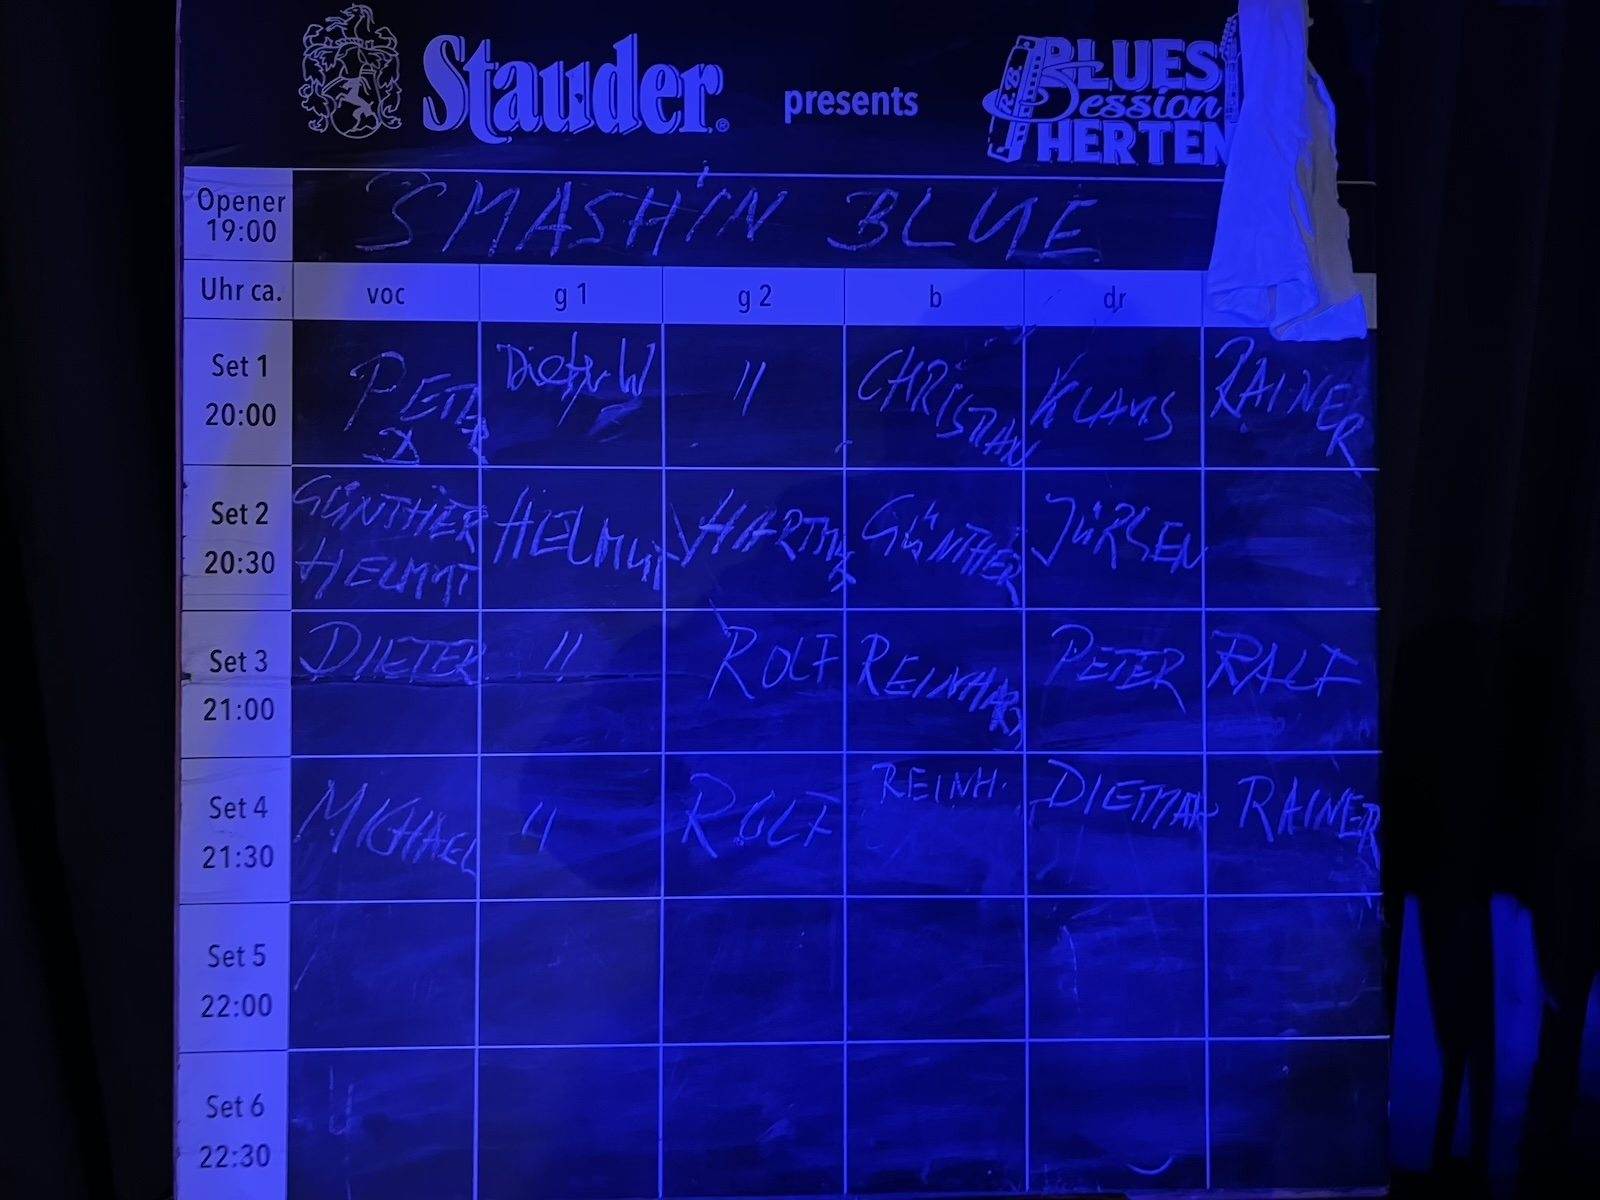 Stauder® presents BLUES Session HERTEN
R.B.
Opener 19:00 SMASHIN BLUE
Uhr ca. voc g 1 g 2 b dr
Set 1 20:00 PETER D Dieter W " CHRISTIAN KLAUS RAINER
Set 2 20:30 GÜNTHER HELMUT HELMUT HARTMUT GÜNTHER JÜRGEN
Set 3 21:00 DIETER " ROLF REINHARD PETER RALF
Set 4 21:30 MICHAEL " ROLF REINH. DIETMAR RAINER
Set 5 22:00
Set 6 22:30